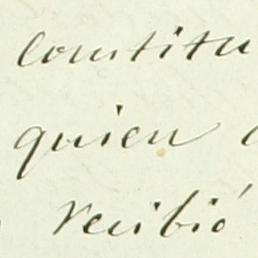 constitu
quien
recibió